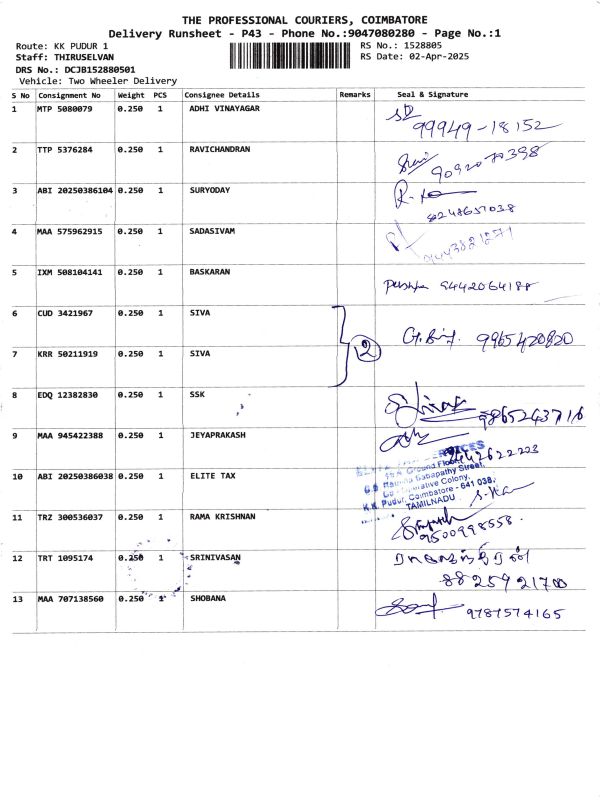 THE PROFESSIONAL COURIERS, COIMBATORE
Delivery Runsheet - P43 - Phone No.:9047080280 - Page No.:1
Route: KK PUDUR 1 RS No.: 1528805
Staff: THIRUSELVAN RS Date: 02-Apr-2025
DRS No.: DCJB152880501
Vehicle: Two Wheeler Delivery
S No Consignment No Weight PCS Consignee Details Remarks Seal & Signature
1 MTP 5080079 0.250 1 ADHI VINAYAGAR 99949-18152
2 TTP 5376284 0.250 1 RAVICHANDRAN 9092070398
3 ABI 20250386104 0.250 1 SURYODAY 8248657038
4 MAA 575962915 0.250 1 SADASIVAM
5 IXM 508104141 0.250 1 BASKARAN 9442064188
6 CUD 3421967 0.250 1 SIVA
2 9965420820
7 KRR 50211919 0.250 1 SIVA
8 EDQ 12382830 0.250 1 SSK 9865243716
9 MAA 945422388 0.250 1 JEYAPRAKASH 9442622223
10 ABI 20250386038 0.250 1 ELITE TAX
SERVICES
Ground Floor,
Sabapathy Street,
Co-operative Colony,
K.K. Pudur, Coimbatore - 641 038.
TAMILNADU
11 TRZ 300536037 0.250 1 RAMA KRISHNAN 9500998558
12 TRT 1095174 0.250 1 SRINIVASAN
8825921700
13 MAA 707138560 0.250 1 SHOBANA 9787574165